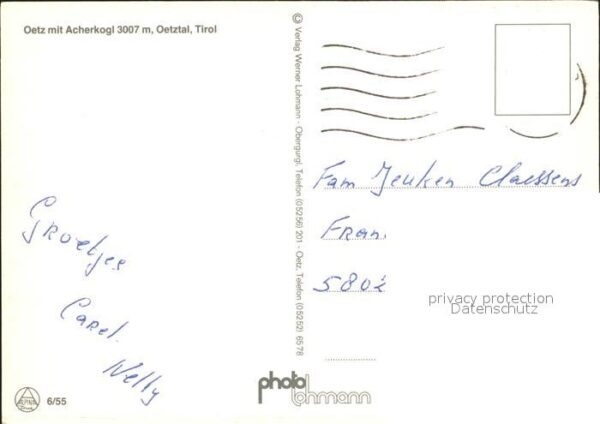 Oetz mit Acherkogl 3007 m, Oetztal, Tirol
© Verlag Werner Lohmann - Obergurgl, Telefon (05256) 201 - Oetz, Telefon (05252) 6578
Fam Jeuken Claessens
Fran.
5802
Groetjes
Carel.
Nelly
privacy protection
Datenschutz
photo
lohmann
6/55